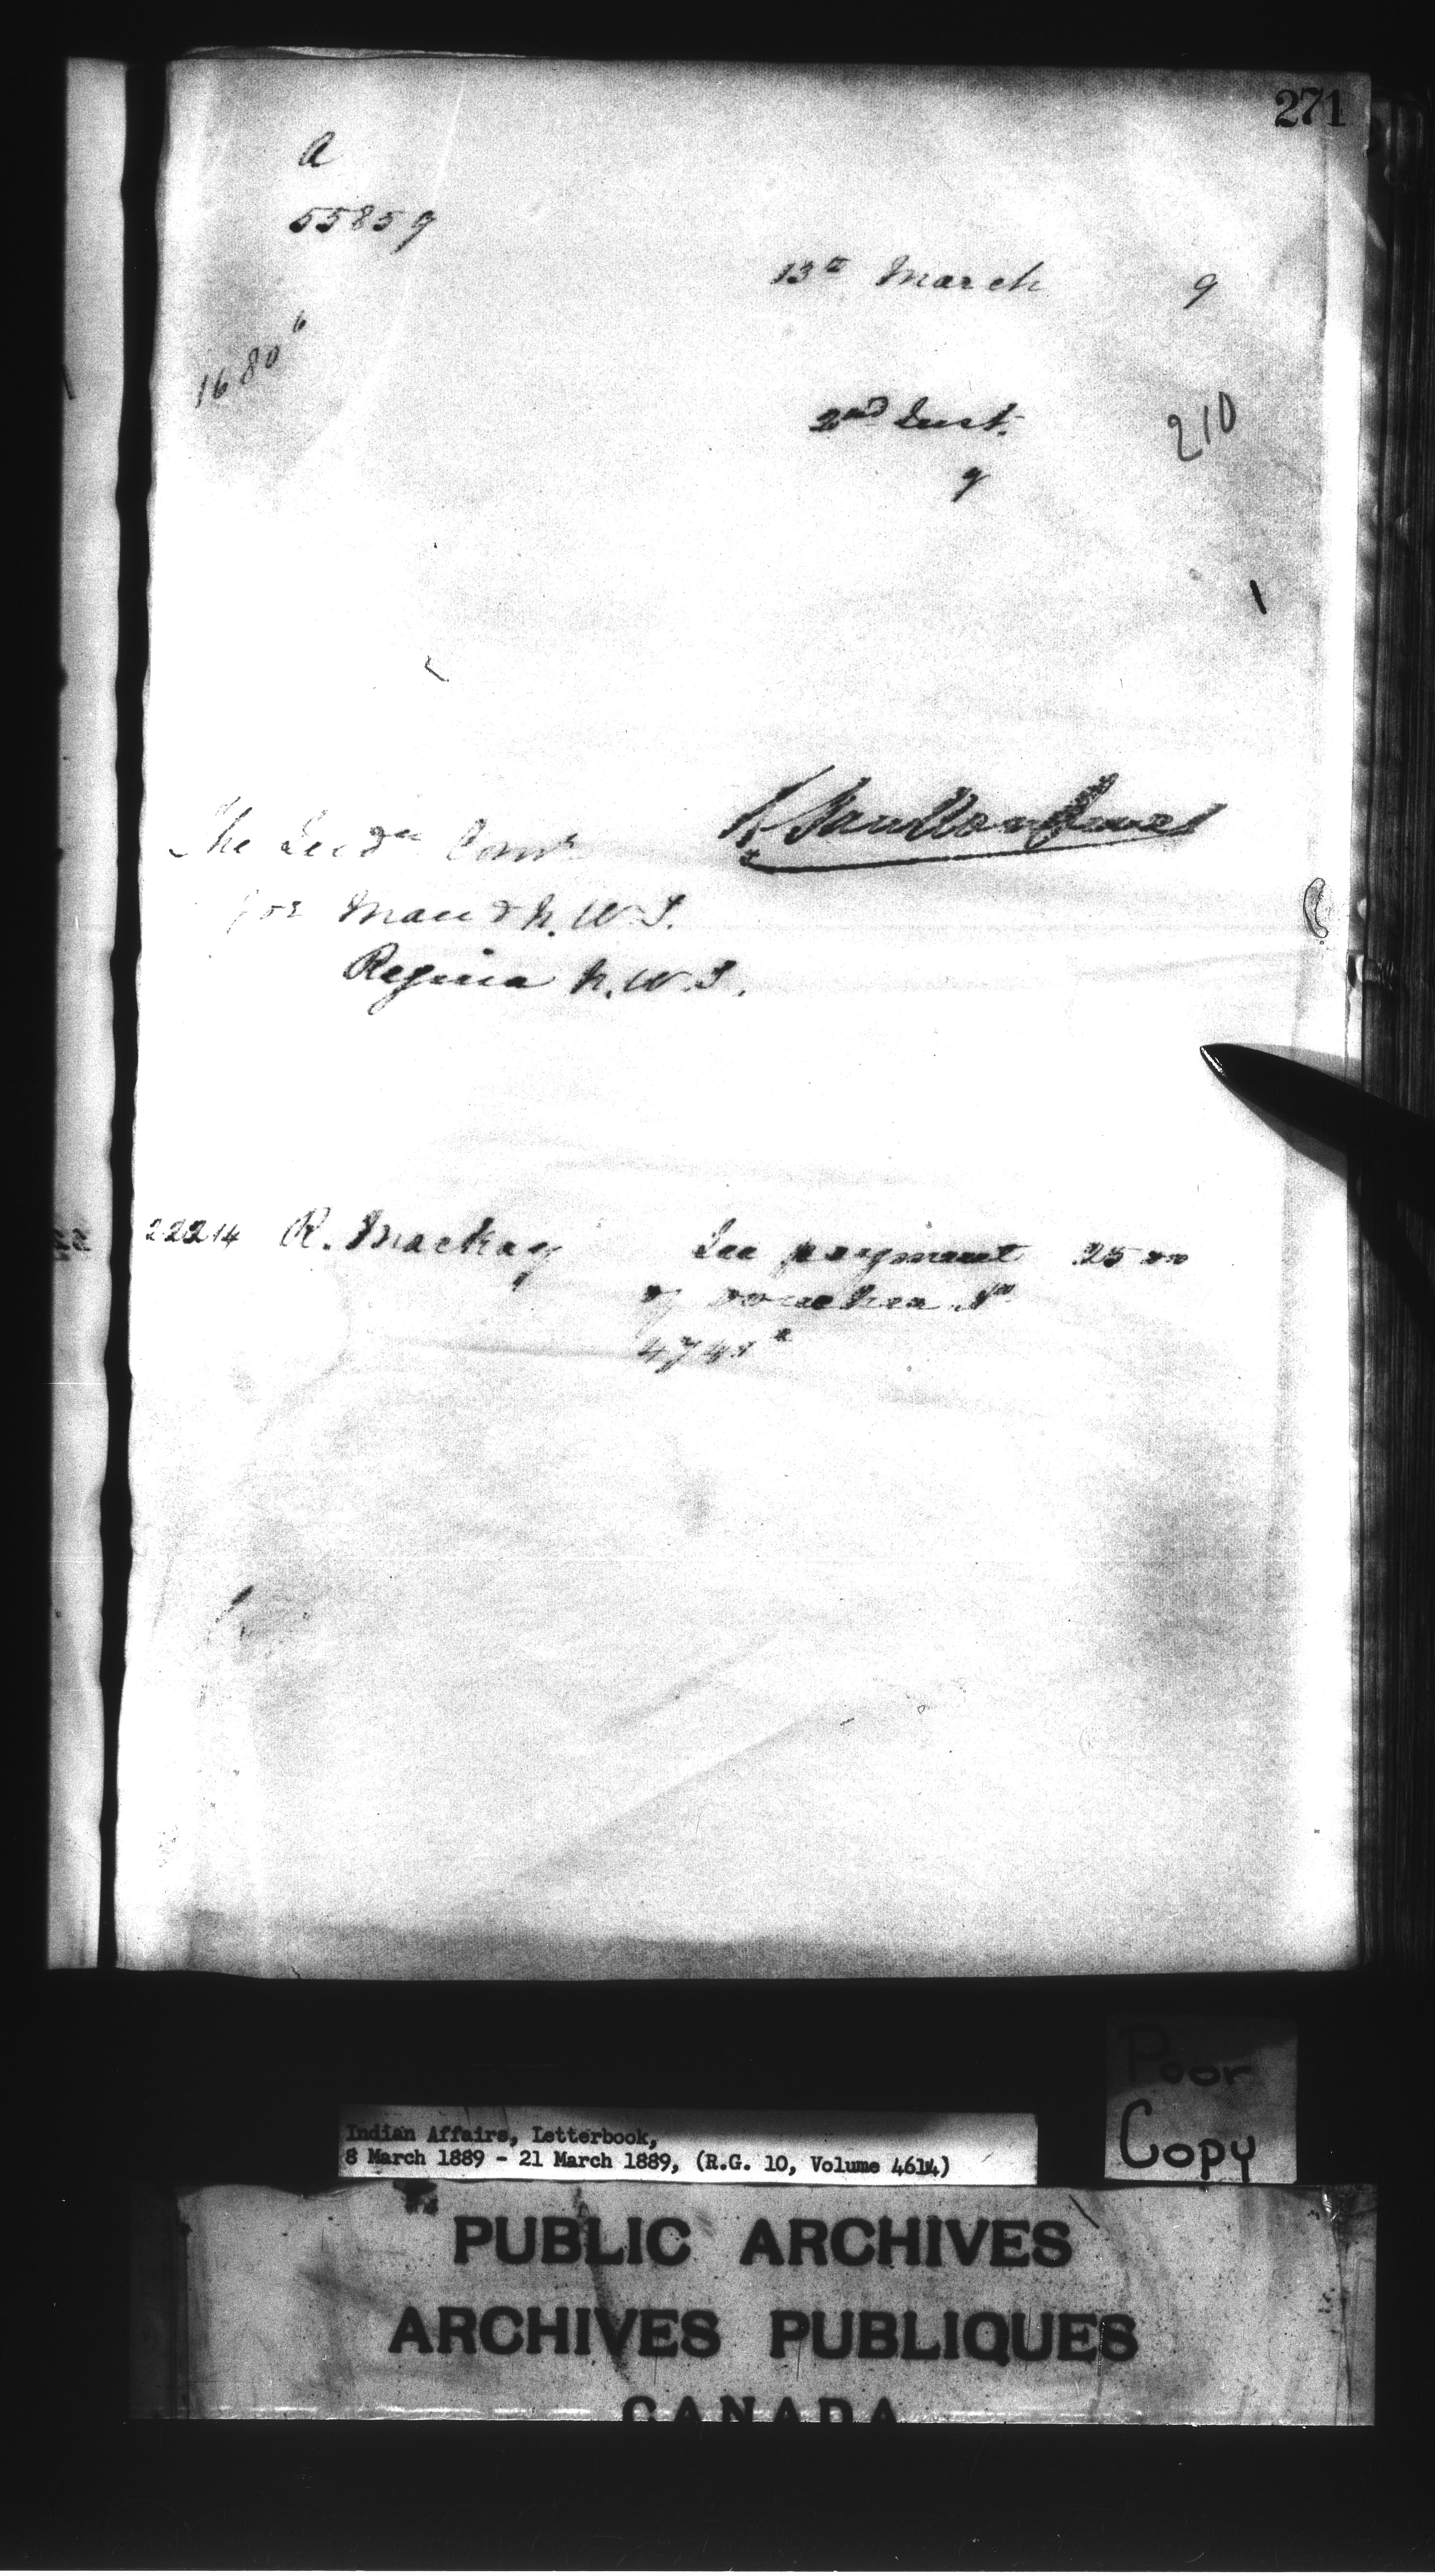 271
A
55859
13th March 9
1680
210
2nd Inst.
9
1
The Ind'n Com'r
for Man & N.W.T.
Regina N.W.T.
22214 R. Mackay In payment 25 00
of voucher No
Poor
Copy
Indian Affairs, Letterbook,
8 March 1889 - 21 March 1889, (R.G. 10, Volume 4614)
PUBLIC ARCHIVES
ARCHIVES PUBLIQUES
CANADA